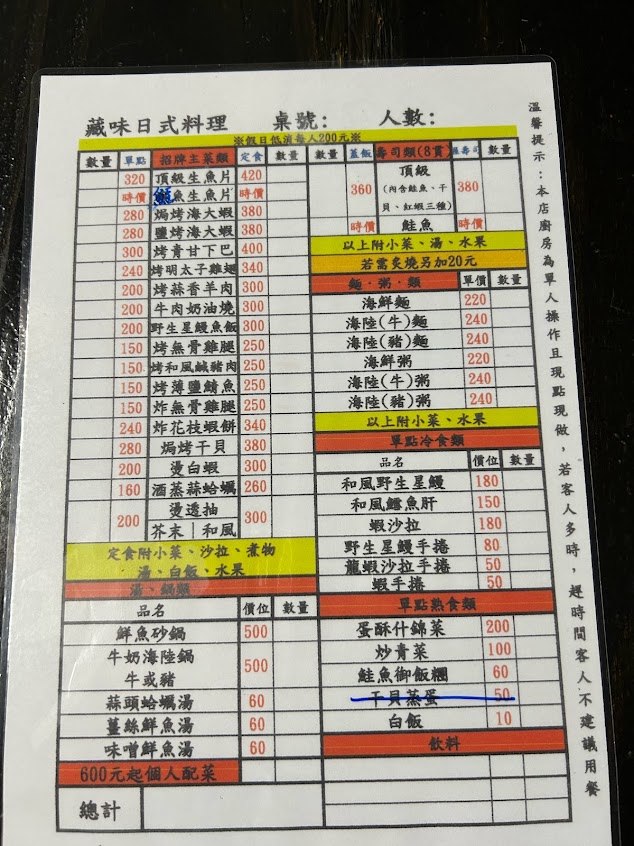 藏味日式料理 桌號: 人數:
※假日低消每人200元※
數量 單點 招牌主菜類 定食 數量
320 頂級生魚片 420
時價 魚生魚片 時價
280 焗烤海大蝦 380
280 鹽烤海大蝦 380
300 烤青甘下巴 400
240 烤明太子雞翅 340
200 烤蒜香羊肉 300
200 牛肉奶油燒 300
200 野生星鰻魚飯 300
150 烤無骨雞腿 250
150 烤和風鹹豬肉 250
150 烤薄鹽鯖魚 250
150 炸無骨雞腿 250
240 炸花枝蝦餅 340
280 焗烤干貝 380
200 燙白蝦 300
160 酒蒸蒜蛤蠣 260
200 燙透抽 300
芥末 | 和風
定食附小菜、沙拉、煮物
湯、白飯、水果
湯、鍋類
品名 價位 數量
鮮魚砂鍋 500
牛奶海陸鍋 500
牛或豬
蒜頭蛤蠣湯 60
薑絲鮮魚湯 60
味噌鮮魚湯 60
600元起個人配菜
總計
數量 蓋飯 壽司類(8貫) 握壽司 數量
360 頂級 380
(內含鮭魚、干
貝、紅蝦三種)
時價 鮭魚 時價
以上附小菜、湯、水果
若需炙燒另加20元
麵．粥．類 單價 數量
海鮮麵 220
海陸(牛)麵 240
海陸(豬)麵 240
海鮮粥 220
海陸(牛)粥 240
海陸(豬)粥 240
以上附小菜、水果
單點冷食類
品名 價位 數量
和風野生星鰻 180
和風鱈魚肝 150
蝦沙拉 180
野生星鰻手捲 80
龍蝦沙拉手捲 50
蝦手捲 50
單點熟食類
蛋酥什錦菜 200
炒青菜 100
鮭魚御飯糰 60
干貝蒸蛋 50
白飯 10
飲料
溫馨提示:本店廚房為單人操作且現點現做,若客人多時,趕時間客人不建議用餐